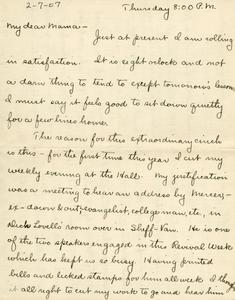 2-7-07 Thursday 8:00 P.M.
My dear Mama-
Just at present I am rolling
in satisfaction. It is eight o'clock and not
a darn thing to tend to except tomorrow's lessons.
I must say it feels good to sit down quietly
for a few lines home.
The reason for this extraordinary cinch
is this - for the first time this year I cut my
weekly evening at the Hall. My justification
was a meeting to hear an address by Mercer,-
ex-down & out, evangelist, college man, etc., in
Dick Lovell's room over in Sheff-Van. He is one
of the two speakers engaged in this Revival Week
which has kept us so busy. Having printed
bills and licked stamps for him all week I thought
it all right to cut my work to go and hear him